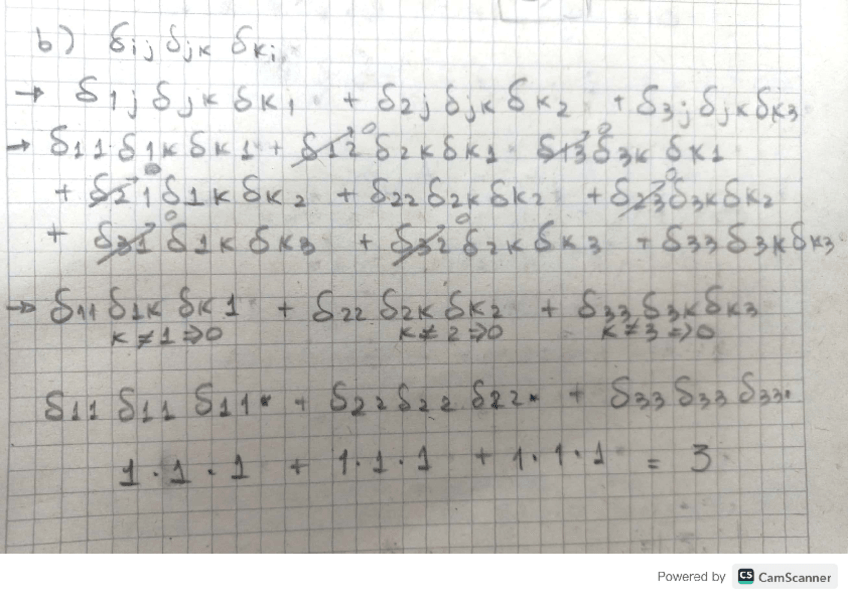 b) δij δjk δki
→ δ1j δjk δk1 + δ2j δjk δk2 + δ3j δjk δk3
→ δ11 δ1k δk1 + δ12 0 δ2k δk1 δ13 0 δ3k δk1
+ δ21 0 δ1k δk2 + δ22 δ2k δk2 + δ23 0 δ3k δk2
+ δ31 0 δ1k δk3 + δ32 0 δ2k δk3 + δ33 δ3k δk3
→ δ11 δ1k δk1 + δ22 δ2k δk2 + δ33 δ3k δk3
k ≠ 1 ⇒ 0 k ≠ 2 ⇒ 0 k ≠ 3 ⇒ 0
δ11 δ11 δ11 + δ22 δ22 δ22 + δ33 δ33 δ33
1 · 1 · 1 + 1 · 1 · 1 + 1 · 1 · 1 = 3
Powered by CS CamScanner